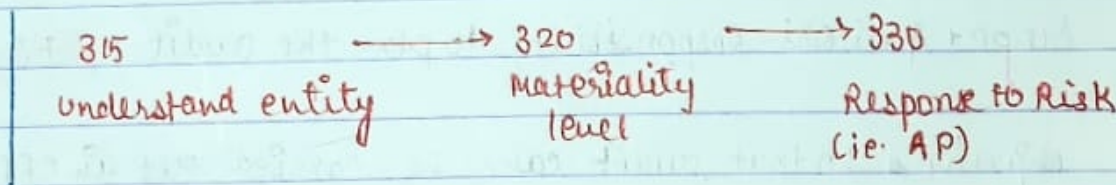 315 → 320 → 330
understand entity Materiality Response to Risk
level (ie. AP)